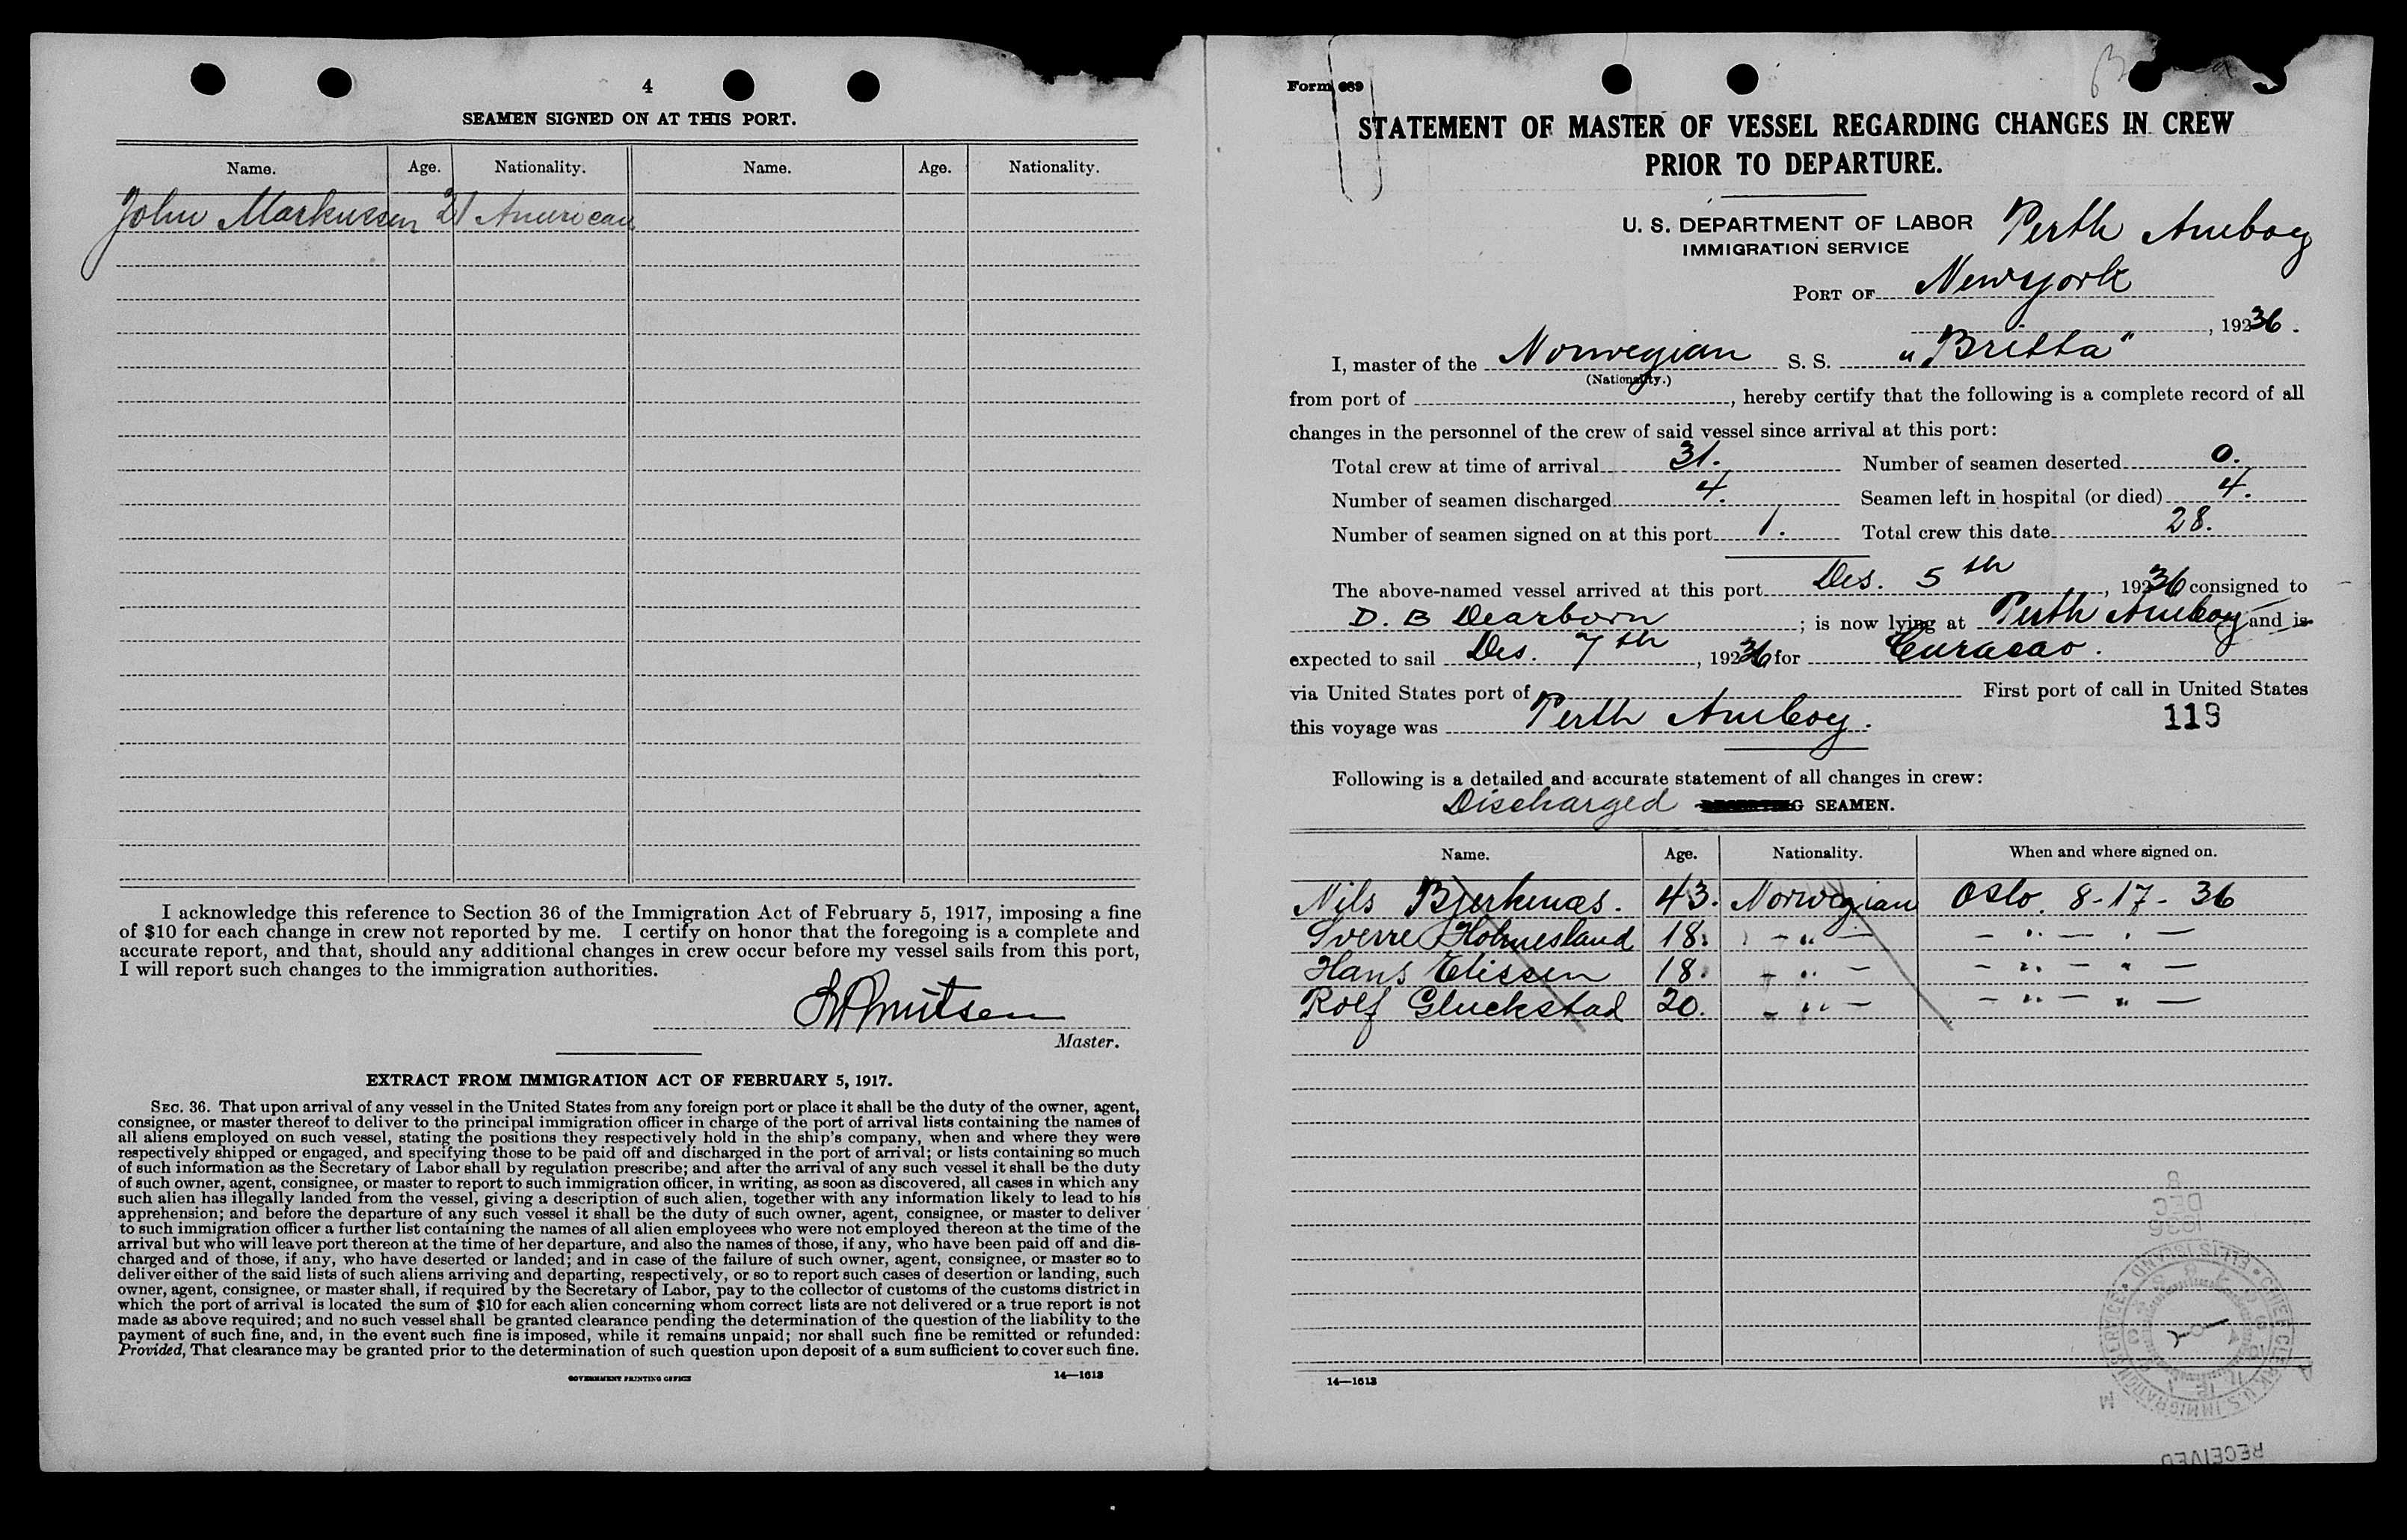 4
SEAMEN SIGNED ON AT THIS PORT.
Name. Age. Nationality. Name. Age. Nationality.
John Markussen 21 American
I acknowledge this reference to Section 36 of the Immigration Act of February 5, 1917, imposing a fine
of $10 for each change in crew not reported by me. I certify on honor that the foregoing is a complete and
accurate report, and that, should any additional changes in crew occur before my vessel sails from this port,
I will report such changes to the immigration authorities.
Master.
EXTRACT FROM IMMIGRATION ACT OF FEBRUARY 5, 1917.
SEC. 36. That upon arrival of any vessel in the United States from any foreign port or place it shall be the duty of the owner, agent,
consignee, or master thereof to deliver to the principal immigration officer in charge of the port of arrival lists containing the names of
all aliens employed on such vessel, stating the positions they respectively hold in the ship's company, when and where they were
respectively shipped or engaged, and specifying those to be paid off and discharged in the port of arrival; or lists containing so much
of such information as the Secretary of Labor shall by regulation prescribe; and after the arrival of any such vessel it shall be the duty
of such owner, agent, consignee, or master to report to such immigration officer, in writing, as soon as discovered, all cases in which any
such alien has illegally landed from the vessel, giving a description of such alien, together with any information likely to lead to his
apprehension; and before the departure of any such vessel it shall be the duty of such owner, agent, consignee, or master to deliver
to such immigration officer a further list containing the names of all alien employees who were not employed thereon at the time of the
arrival but who will leave port thereon at the time of her departure, and also the names of those, if any, who have been paid off and dis-
charged and of those, if any, who have deserted or landed; and in case of the failure of such owner, agent, consignee, or master so to
deliver either of the said lists of such aliens arriving and departing, respectively, or so to report such cases of desertion or landing, such
owner, agent, consignee, or master shall, if required by the Secretary of Labor, pay to the collector of customs of the customs district in
which the port of arrival is located the sum of $10 for each alien concerning whom correct lists are not delivered or a true report is not
made as above required; and no such vessel shall be granted clearance pending the determination of the question of the liability to the
payment of such fine, and, in the event such fine is imposed, while it remains unpaid; nor shall such fine be remitted or refunded:
Provided, That clearance may be granted prior to the determination of such question upon deposit of a sum sufficient to cover such fine.
GOVERNMENT PRINTING OFFICE 14—1613
Form 689
STATEMENT OF MASTER OF VESSEL REGARDING CHANGES IN CREW
PRIOR TO DEPARTURE.
U. S. DEPARTMENT OF LABOR Perth Amboy
IMMIGRATION SERVICE
PORT OF Newyork
, 19236.
I, master of the Norwegian S. S. "Britta"
(Nationality.)
from port of , hereby certify that the following is a complete record of all
changes in the personnel of the crew of said vessel since arrival at this port:
Total crew at time of arrival 31. Number of seamen deserted 0.
Number of seamen discharged 4. Seamen left in hospital (or died) 4.
Number of seamen signed on at this port 1. Total crew this date 28.
The above-named vessel arrived at this port Des. 5th, 19236 consigned to
D. B Dearborn ; is now lying at Perth Amboy and is
expected to sail Des. 7th, 19236 for Curacao.
via United States port of First port of call in United States
this voyage was Perth Amboy. 119
Following is a detailed and accurate statement of all changes in crew:
Discharged SEAMEN.
Name. Age. Nationality. When and where signed on.
Nils Bjerkenæs. 43. Norwegian Oslo. 8-17-36
Sverre Holmesland 18. - " - - " - " -
Hans Elissen 18. - " - - " - " -
Rolf Gluckstad 20. - " - - " - " -
8
DEC
1936
CHIEF CLERK U.S. IMMIGRATION SERVICE • ELLIS ISLAND •
14—1613
RECEIVED